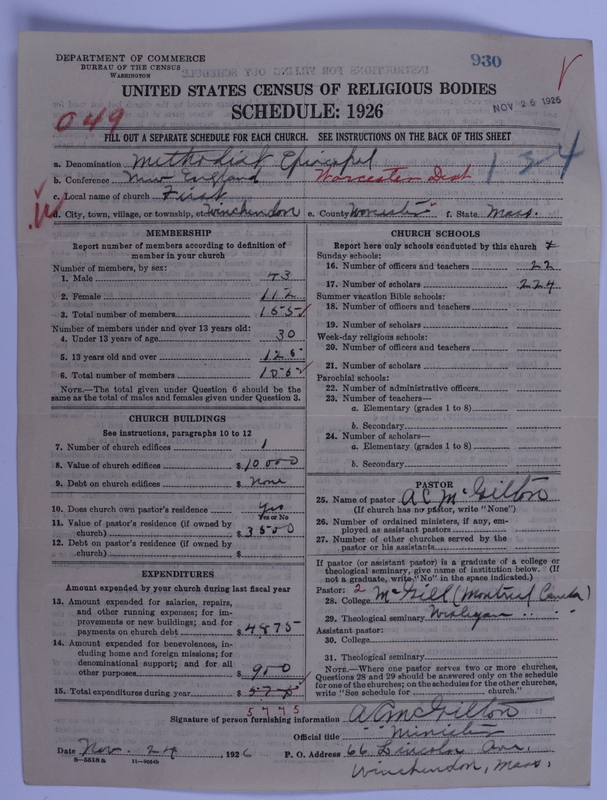 DEPARTMENT OF COMMERCE
BUREAU OF THE CENSUS
WASHINGTON
930
NOV 26 1926
UNITED STATES CENSUS OF RELIGIOUS BODIES
SCHEDULE: 1926
049
FILL OUT A SEPARATE SCHEDULE FOR EACH CHURCH. SEE INSTRUCTIONS ON THE BACK OF THIS SHEET
134
a. Denomination Methodist Episcopal
b. Conference New England Worcester Dist
c. Local name of church First
d. City, town, village, or township, etc. Winchendon e. County Worcester f. State Mass.
MEMBERSHIP
Report number of members according to definition of
member in your church
Number of members, by sex:
1. Male 43
2. Female 112
3. Total number of members 155
Number of members under and over 13 years old:
4. Under 13 years of age 30
5. 13 years old and over 125
6. Total number of members 155
NOTE.—The total given under Question 6 should be the
same as the total of males and females given under Question 3.
CHURCH BUILDINGS
See instructions, paragraphs 10 to 12
7. Number of church edifices 1
8. Value of church edifices $10000
9. Debt on church edifices $ None
10. Does church own pastor's residence Yes
Yes or No
11. Value of pastor's residence (if owned by
church) $3500
12. Debt on pastor's residence (if owned by
church) $
EXPENDITURES
Amount expended by your church during last fiscal year
13. Amount expended for salaries, repairs,
and other running expenses; for im-
provements or new buildings; and for
payments on church debt $4875
14. Amount expended for benevolences, in-
cluding home and foreign missions; for
denominational support; and for all
other purposes $900
15. Total expenditures during year $
5775
CHURCH SCHOOLS
Report here only schools conducted by this church
Sunday schools:
16. Number of officers and teachers 22
17. Number of scholars 224
Summer vacation Bible schools:
18. Number of officers and teachers
19. Number of scholars
Week-day religious schools:
20. Number of officers and teachers
21. Number of scholars
Parochial schools:
22. Number of administrative officers
23. Number of teachers—
a. Elementary (grades 1 to 8)
b. Secondary
24. Number of scholars—
a. Elementary (grades 1 to 8)
b. Secondary
PASTOR
25. Name of pastor A C McGilton
(If church has no pastor, write "None")
26. Number of ordained ministers, if any, em-
ployed as assistant pastors
27. Number of other churches served by the
pastor or his assistants
If pastor (or assistant pastor) is a graduate of a college or
theological seminary, give name of institution below. (If
not a graduate, write "No" in the space indicated.)
Pastor: 2
28. College McGill (Montreal Canada)
29. Theological seminary Wesleyan " "
Assistant pastor:
30. College
31. Theological seminary
NOTE.—Where one pastor serves two or more churches,
Questions 28 and 29 should be answered only on the schedule
for one of the churches; on the schedules for the other churches,
write "See schedule for church."
Signature of person furnishing information A C McGilton
Official title Minister
Date Nov. 24, 1926 P. O. Address 66 Lincoln Ave.
Winchendon, Mass.
8—5518a 11—9064b